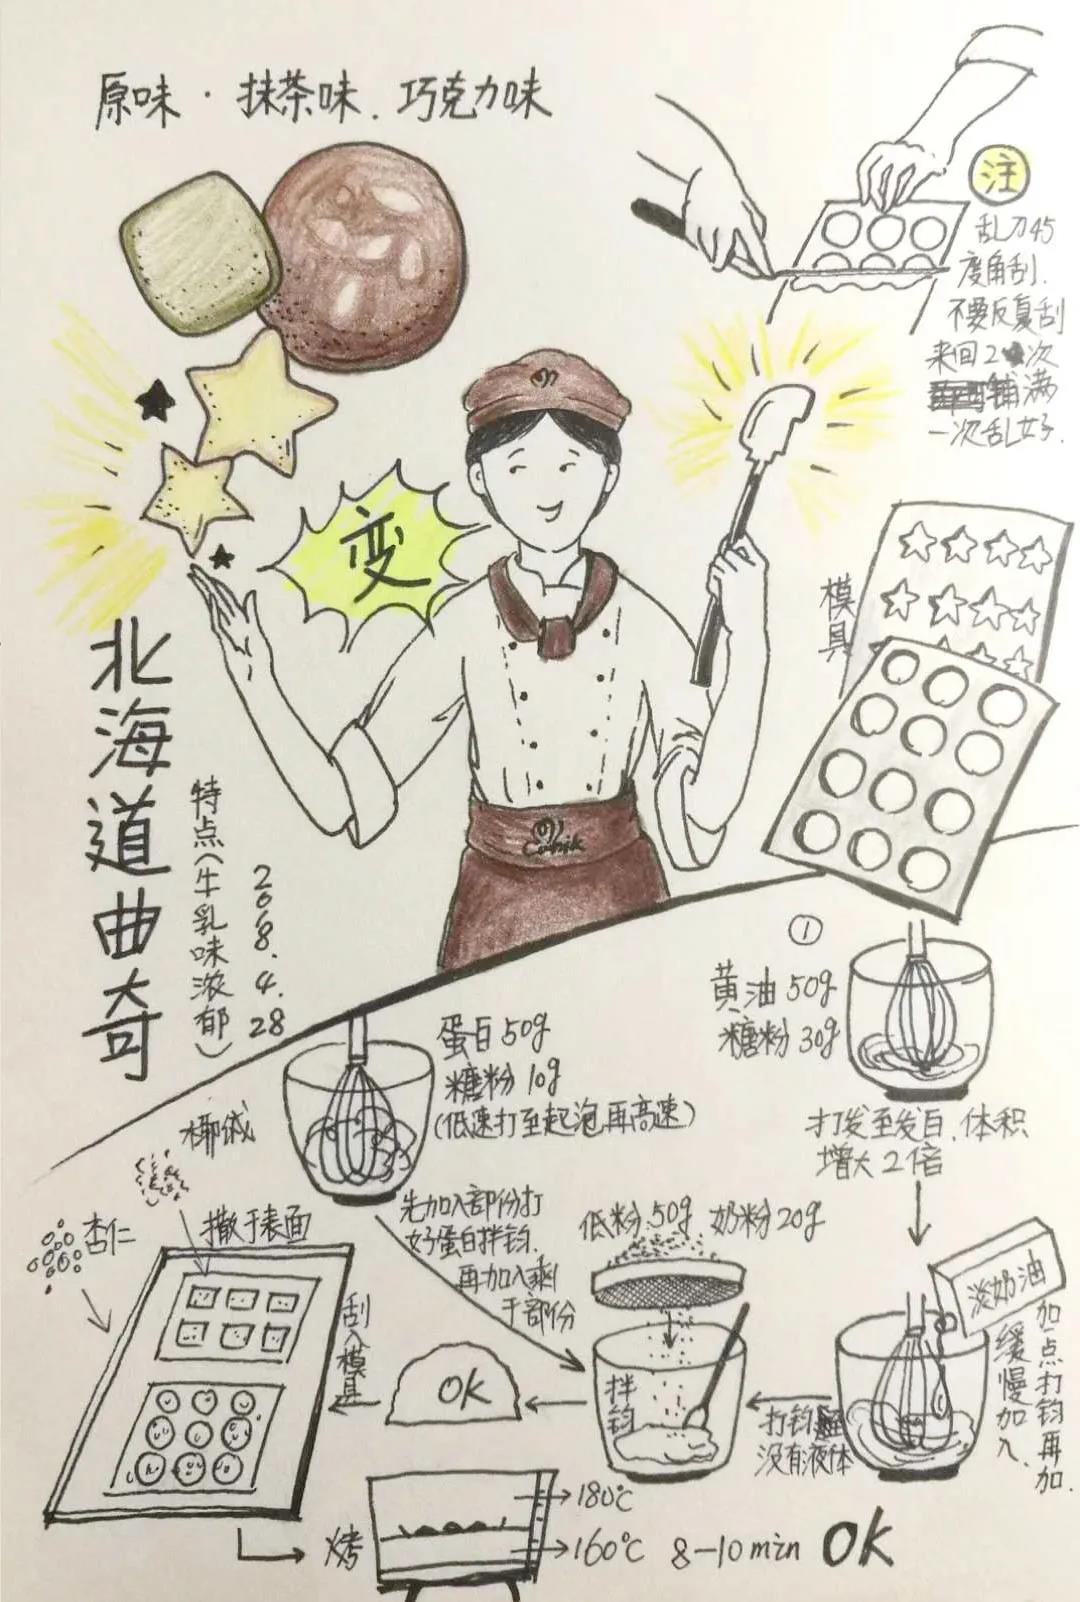 原味·抹茶味.巧克力味
注
乱刀45
度角刮.
不要反复刮
来回2次
铺满
一次乱好.
变
模具
北海道曲奇
特点(牛乳味浓郁)
2018.4.28
①
黄油50g
糖粉30g
打发至发白.体积
增大2倍
淡奶油
加一点打钧再加.
缓慢加入.
打钧
没有液体
低粉.50g 奶粉20g
拌钧
蛋白50g
糖粉10g
(低速打至起泡再高速)
先加入部份打
好蛋白拌钧.
再加入剩
于部份
OK
刮入模具
椰绒
杏仁
撒于表面
烤
180℃
160℃ 8-10min OK